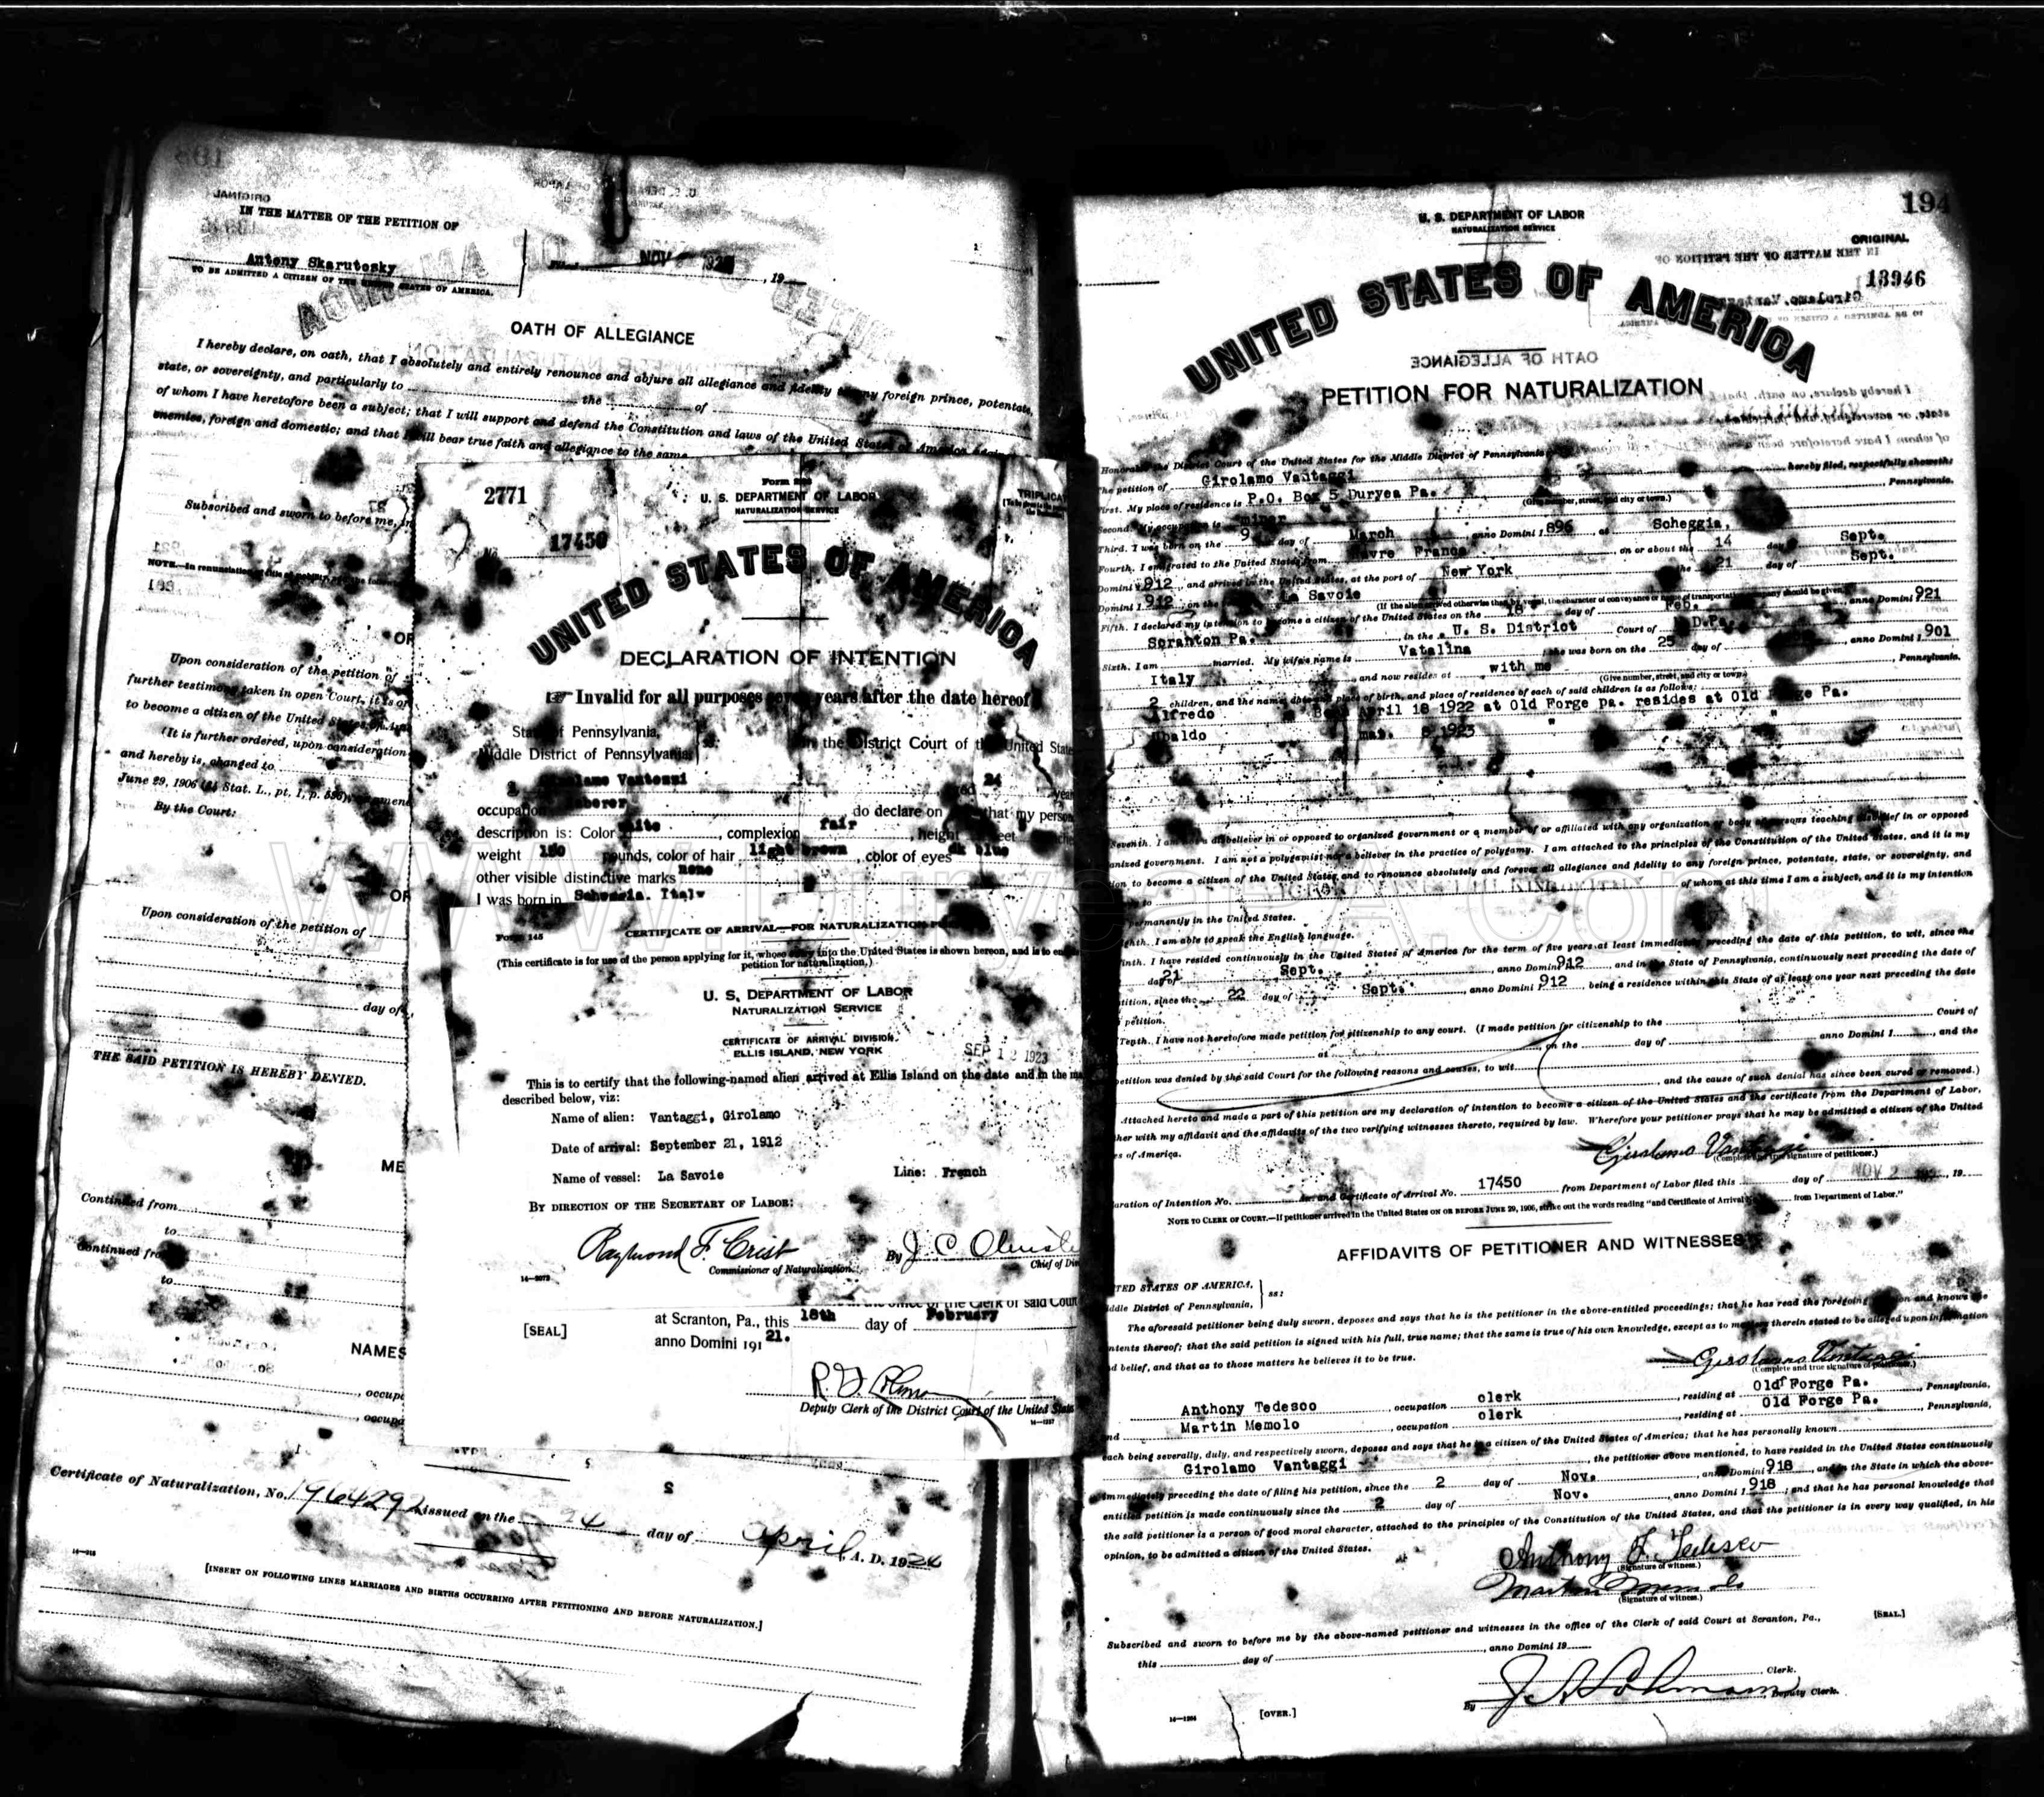 IN THE MATTER OF THE PETITION OF
Antony Skarutosky
TO BE ADMITTED A CITIZEN OF THE UNITED STATES OF AMERICA.
Filed NOV 192 , 19
OATH OF ALLEGIANCE
I hereby declare, on oath, that I absolutely and entirely renounce and abjure all allegiance and fidelity to any foreign prince, potentate,
state, or sovereignty, and particularly to the of
of whom I have heretofore been a subject; that I will support and defend the Constitution and laws of the United States of America against
enemies, foreign and domestic; and that I will bear true faith and allegiance to the same.
Subscribed and sworn to before me, in
NOTE.—In renunciation of title of nobility,
OR
Upon consideration of the petition of
further testimony taken in open Court, it is or
to become a citizen of the United States of
(It is further ordered, upon consideration
and hereby is, changed to
June 29, 1906 (34 Stat. L., pt. 1, p. 596),
By the Court:
OR
Upon consideration of the petition of
day of
THE SAID PETITION IS HEREBY DENIED.
ME
Continued from
to
Continued from
to
NAMES
, occupa
, occupa
Certificate of Naturalization, No. 1964292 issued on the 24 day of April, A. D. 1924
[INSERT ON FOLLOWING LINES MARRIAGES AND BIRTHS OCCURRING AFTER PETITIONING AND BEFORE NATURALIZATION.]
2771
Form
U. S. DEPARTMENT OF LABOR
NATURALIZATION SERVICE
TRIPLICAT
No. 17450
UNITED STATES OF AMERICA
DECLARATION OF INTENTION
☞ Invalid for all purposes seven years after the date hereof
State of Pennsylvania,
Middle District of Pennsylvania,
In the District Court of the United State
lamo Vantozzi 24
occupation Laborer do declare on that my person
description is: Color white, complexion fair, height feet
weight 150 pounds, color of hair light brown, color of eyes dk blue
other visible distinctive marks none
I was born in Schengia. Italy
Form 145
CERTIFICATE OF ARRIVAL—FOR NATURALIZATION P
(This certificate is for use of the person applying for it, whose entry into the United States is shown hereon, and is to
petition for naturalization.)
U. S. DEPARTMENT OF LABOR
NATURALIZATION SERVICE
CERTIFICATE OF ARRIVAL DIVISION.
ELLIS ISLAND, NEW YORK
SEP 12 1923
This is to certify that the following-named alien arrived at Ellis Island on the date and in the ma
described below, viz:
Name of alien: Vantaggi, Girolamo
Date of arrival: September 21, 1912
Name of vessel: La Savoie Line: French
BY DIRECTION OF THE SECRETARY OF LABOR:
Raymond F. Crist
Commissioner of Naturalization.
By J. C.
Chief of Di
the office of the Clerk of said Cour
[SEAL]
at Scranton, Pa., this 18th day of February
anno Domini 1921.
Deputy Clerk of the District Court of the United State
194
U. S. DEPARTMENT OF LABOR
NATURALIZATION SERVICE
ORIGINAL
13946
UNITED STATES OF AMERICA
PETITION FOR NATURALIZATION
Honorable the District Court of the United States for the Middle District of Pennsylvania
The petition of Girolamo Vantaggi hereby filed, respectfully showeth:
First. My place of residence is P.O. Box 5 Duryea Pa. Pennsylvania.
(Give number, street, and city or town.)
Second. My occupation is miner
Third. I was born on the 9 day of March, anno Domini 1896 at Scheggia,
Fourth. I emigrated to the United States from Havre France on or about the 14 day of Sept.
Domini 1912, and arrived in the United States, at the port of New York the 21 day of Sept.
Domini 1912, on the La Savoie
(If the alien arrived otherwise than by vessel, the character of conveyance or name of transportation company should be given.)
Fifth. I declared my intention to become a citizen of the United States on the 18 day of Feb., anno Domini 1921
Scranton Pa. , in the U. S. District Court of
Sixth. I am married. My wife's name is Vatalina; she was born on the 25 day of , anno Domini 1901
Italy, and now resides at with me, Pennsylvania.
(Give number, street, and city or town.)
2 children, and the name, date and place of birth, and place of residence of each of said children is as follows:
Alfredo Born April 18 1922 at Old Forge Pa. resides at Old Forge Pa.
Ubaldo may. 1923 " "
Seventh. I am not a disbeliever in or opposed to organized government or a member of or affiliated with any organization or body of persons teaching disbelief in or opposed
anized government. I am not a polygamist nor a believer in the practice of polygamy. I am attached to the principles of the Constitution of the United States, and it is my
ion to become a citizen of the United States and to renounce absolutely and forever all allegiance and fidelity to any foreign prince, potentate, state, or sovereignty, and
to of whom at this time I am a subject, and it is my intention
permanently in the United States.
ighth. I am able to speak the English language.
inth. I have resided continuously in the United States of America for the term of five years at least immediately preceding the date of this petition, to wit, since the
21 day of Sept., anno Domini 1912, and in the State of Pennsylvania, continuously next preceding the date of
tition, since the 22 day of Sept., anno Domini 1912, being a residence within this State of at least one year next preceding the date
petition.
Tenth. I have not heretofore made petition for citizenship to any court. (I made petition for citizenship to the Court of
at on the day of anno Domini 1 , and the
petition was denied by the said Court for the following reasons and causes, to wit
, and the cause of such denial has since been cured or removed.)
Attached hereto and made a part of this petition are my declaration of intention to become a citizen of the United States and the certificate from the Department of Labor,
her with my affidavit and the affidavits of the two verifying witnesses thereto, required by law. Wherefore your petitioner prays that he may be admitted a citizen of the United
es of America.
Girolamo Vantaggi
(Complete and true signature of petitioner.)
aration of Intention No. and Certificate of Arrival No. 17450 from Department of Labor filed this day of NOV 2 , 19
NOTE TO CLERK OF COURT.—If petitioner arrived in the United States ON OR BEFORE JUNE 29, 1906, strike out the words reading "and Certificate of Arrival from Department of Labor."
AFFIDAVITS OF PETITIONER AND WITNESSES
TED STATES OF AMERICA,
ddle District of Pennsylvania, ss:
The aforesaid petitioner being duly sworn, deposes and says that he is the petitioner in the above-entitled proceedings; that he has read the foregoing petition and knows the
ntents thereof; that the said petition is signed with his full, true name; that the same is true of his own knowledge, except as to matters therein stated to be alleged upon information
d belief, and that as to those matters he believes it to be true.
Girolamo Vantaggi
(Complete and true signature of petitioner.)
Anthony Tedesco, occupation clerk, residing at Old Forge Pa., Pennsylvania,
nd Martin Memolo, occupation clerk, residing at Old Forge Pa., Pennsylvania,
each being severally, duly, and respectively sworn, deposes and says that he is a citizen of the United States of America; that he has personally known
Girolamo Vantaggi, the petitioner above mentioned, to have resided in the United States continuously
immediately preceding the date of filing his petition, since the 2 day of Nov., anno Domini 1918, and in the State in which the above-
entitled petition is made continuously since the 2 day of Nov., anno Domini 1918; and that he has personal knowledge that
the said petitioner is a person of good moral character, attached to the principles of the Constitution of the United States, and that the petitioner is in every way qualified, in his
opinion, to be admitted a citizen of the United States.
Anthony F. Tedesco
(Signature of witness.)
Martin Memolo
(Signature of witness.)
Subscribed and sworn to before me by the above-named petitioner and witnesses in the office of the Clerk of said Court at Scranton, Pa., [SEAL.]
this day of , anno Domini 19
Clerk.
By Deputy Clerk.
[OVER.]